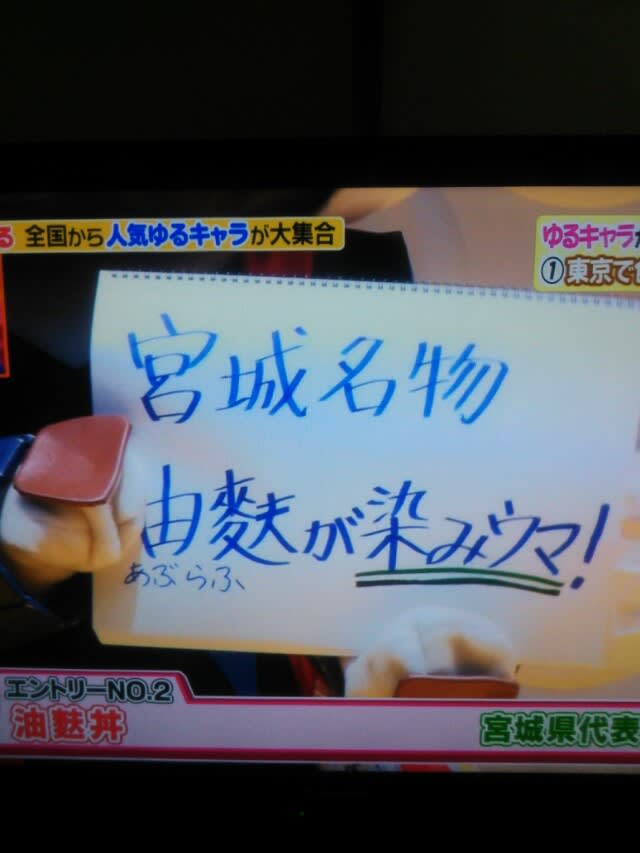 る 全国から人気ゆるキャラが大集合
ゆるキャラが
①東京で食
宮城名物
油麩が染みウマ!
あぶらふ
エントリーNO.2
油麩丼
宮城県代表